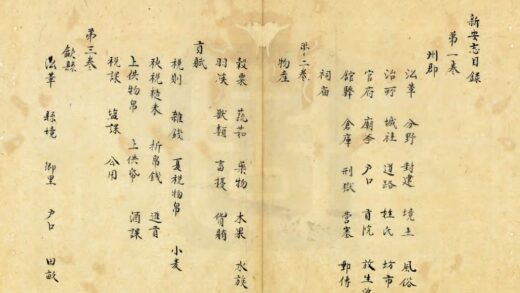 新安志目錄
第一卷
州郡
沿革 分野 封建 境土 風俗
治所 城社 道路 姓氏 坊市
官府 廟學 戶口 貢院 放生池
館驛 倉庫 刑獄 營寨 郵傳
祠廟
第二卷
物産
穀粟 蔬茹 藥物 木果 水族
羽族 獸類 畜擾 貨賄
貢賦
稅則 雜錢 夏稅物帛 小麥
秋稅糙米 折帛錢 進貢
上供物帛 上供帋 酒課
稅課 鹽課 公用
第三卷
歙縣
沿革 縣境 鄉里 戶口 田畝